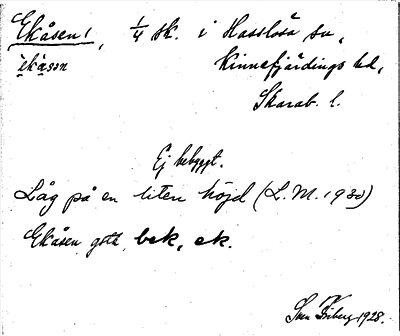 Ekåsen, 1/4 sk. i Hasslösa sn,
ˋekåsən Kinnefjärdings hd,
Skarab. l.
Ej bebyggt.
Låg på en liten höjd (L.M. 1930)
Ekåsen gott bek, ek.
Sven Friberg 1928.